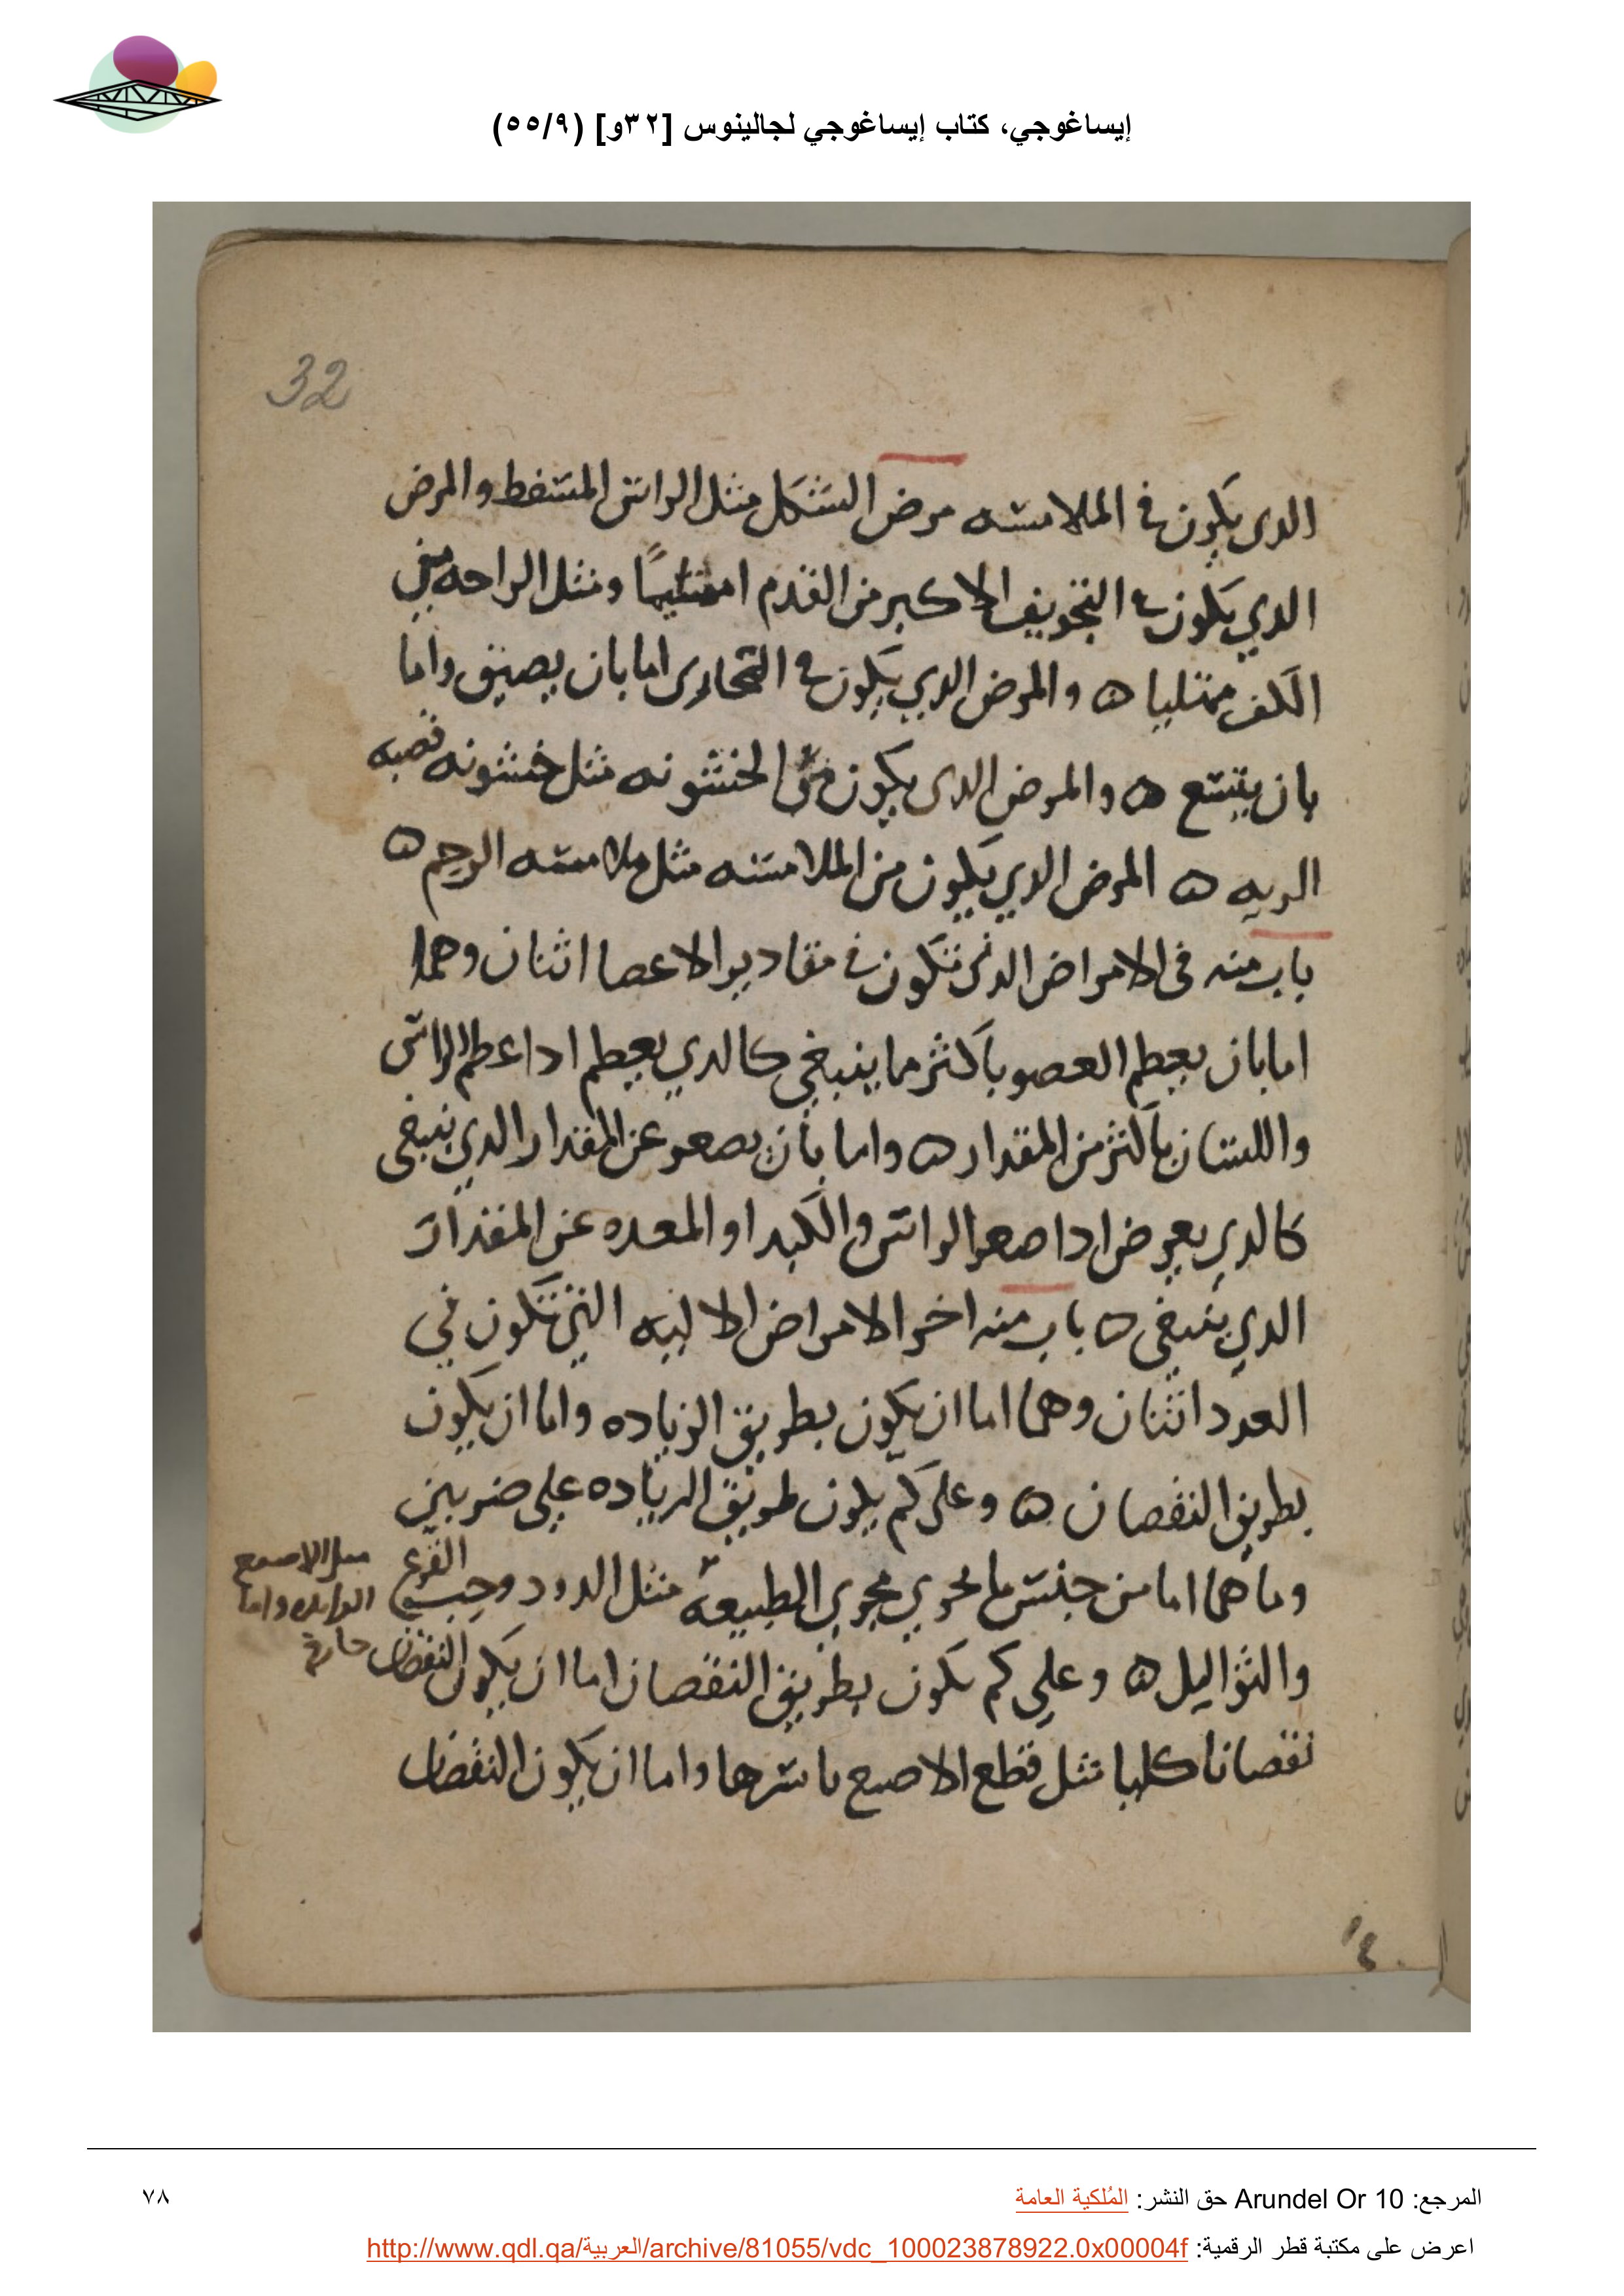 إيساغوجي، كتاب إيساغوجي لجالينوس [٣٢و] (٥٥/٩)
32
الدى يكون في الملامسه مرض الشكل مثل الراس المسفط والمرض
الدي يكون في التجويف الاكبر من القدم ومثل الراحه من
الكف ممتليا ه والمرض الدي يكون في المجارى اما بان يضيق واما
بان يتسع ه والمرض الدى يكون من الخشونه مثل خشونه قصبه
الريه ه المرض الدي يكون من الملامسه مثل ملامسه الرحم ه
باب منه في الامراض الدى تكون في مقادير الاعضا اثنان وهما
اما بان يعطم العضو باكثر ما ينبغي كالدي يعطم ادا عطم الراس
واللسان باكثر من المقدار ه واما بان يصعر عن المقدار الدي ينبغى
كالدي يعرض ادا صعر الراس والكبد او المعده عن المقدار
الدي ينبغى ه باب منه اخر الامراض الاليه التي تكون في
العدد اثنان وهما اما ان يكون بطريق الزياده واما ان يكون
بطريق النقصان ه وعلى كم يكون طريق الزياده على ضربين
وما هما اما من جنس ما يجري مجري الطبيعه مثل الدود وحب القرع
مثل الاصبع
الزايده واما
خارج
والثواليل ه وعلي كم يكون بطريق النقصان اما ان يكون النقصان
نقصانا كليا مثل قطع الاصبع باسرها واما ان يكون النقصان
المرجع: Arundel Or 10 حق النشر: المُلكية العامة
٧٨
اعرض على مكتبة قطر الرقمية: http://www.qdl.qa/العربية/archive/81055/vdc_100023878922.0x00004f